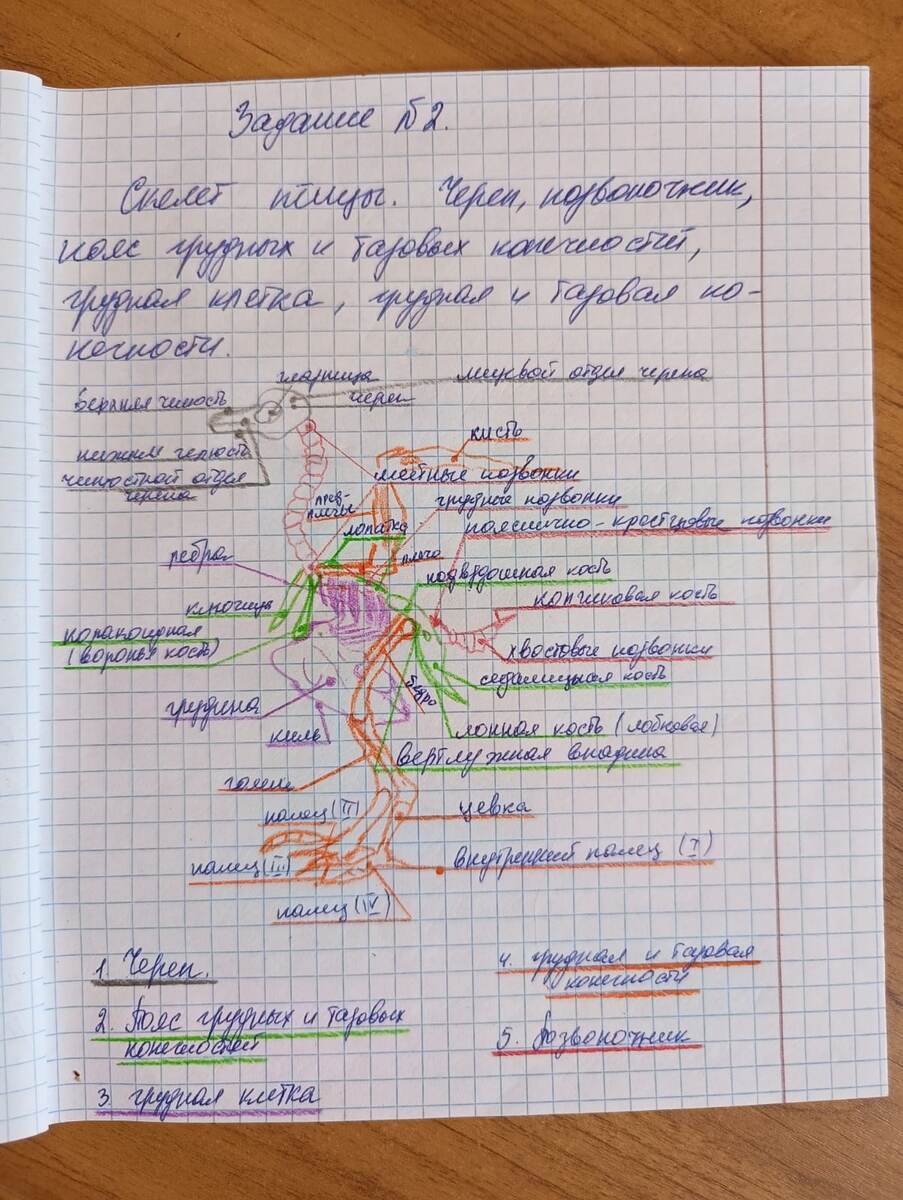 Задание №2.
Скелет птицы. Череп, позвоночник,
пояс грудных и тазовых конечностей,
грудная клетка, грудная и тазовая ко-
нечности.
глазница
мозговой отдел черепа
верхняя челюсть
череп
кисть
нижняя челюсть
челюстной отдел
черепа
шейные позвонки
пред-
плечье
грудные позвонки
лопатка
пояснично-крестцовые позвонки
ребра
плечо
подвздошная кость
ключица
копчиковая кость
коракоидная
(воронья кость)
хвостовые позвонки
седалищная кость
бедро
грудина
лонная кость (лобковая)
киль
вертлужная впадина
голень
палец (II)
цевка
палец (III)
внутренний палец (I)
палец (IV)
1. Череп.
2. Пояс грудных и тазовых
конечностей
3. грудная клетка
4. грудная и тазовая
конечности
5. Позвоночник